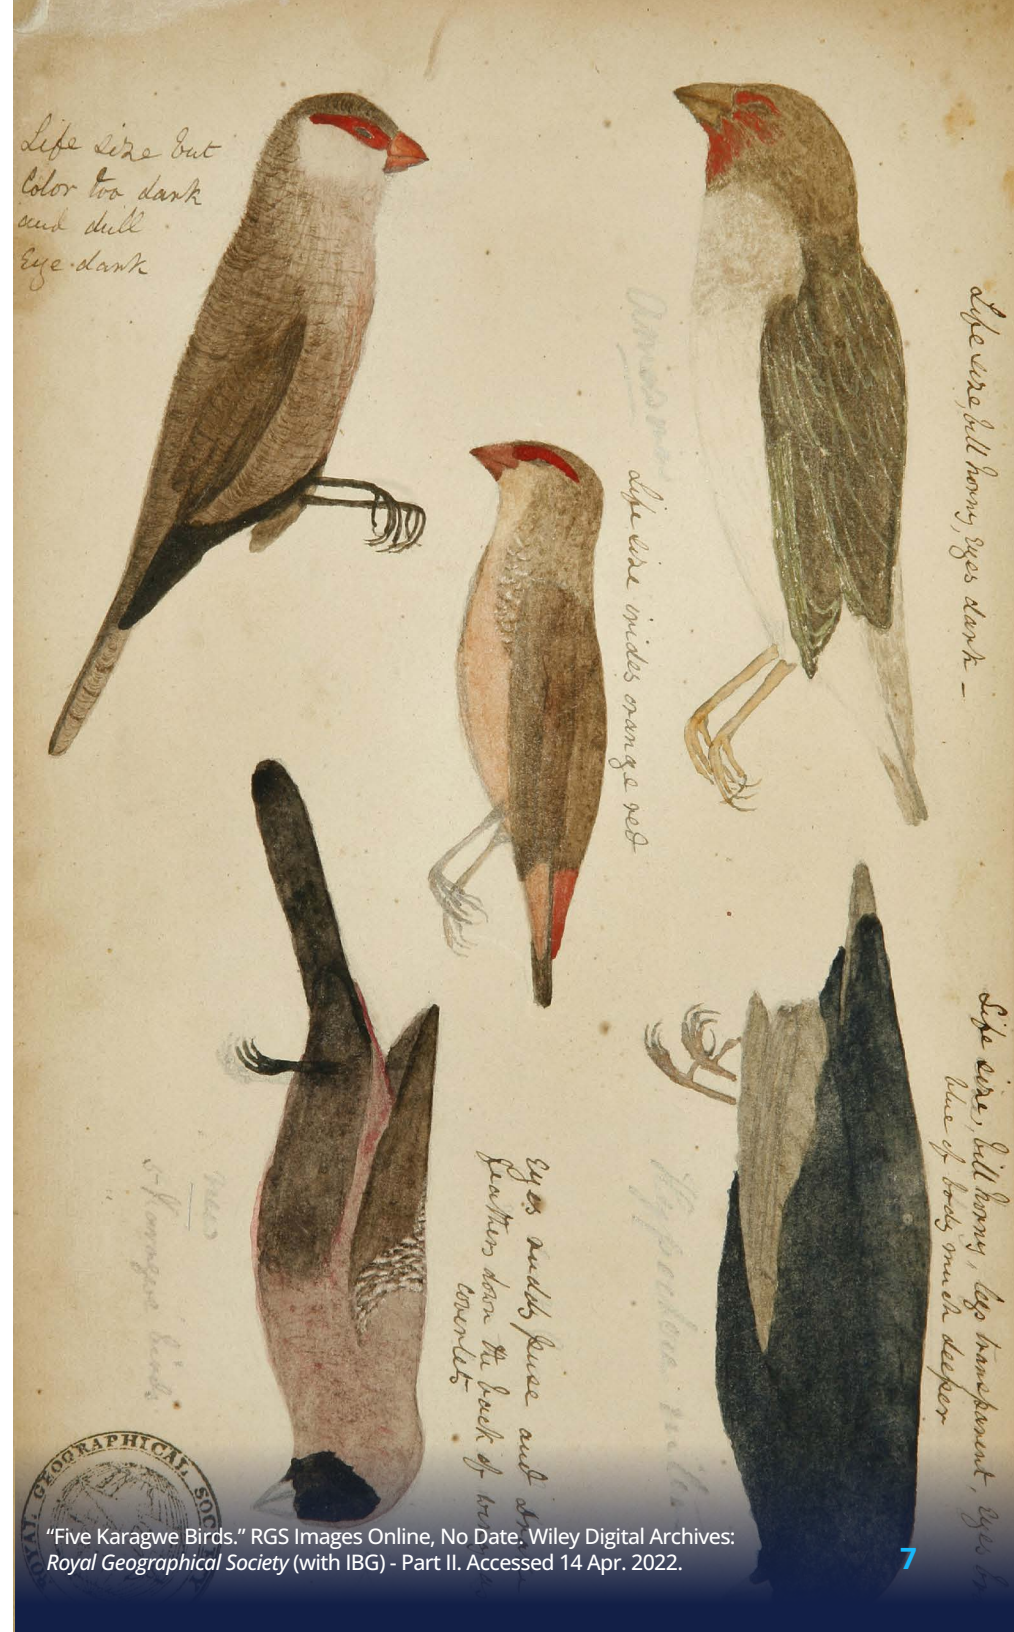 Life size but
Color too dark
and dull
Eye dark
Life size, bill horny, Eyes dark –
Life size irides orange red
Life size, bill horny, legs transparent, Eyes
blue of body much deeper
Eyes ruddy puse and
feathers down the back of
coverlet
5 Karagwe birds
GEOGRAPHICAL SOC
“Five Karagwe Birds.” RGS Images Online, No Date. Wiley Digital Archives:
Royal Geographical Society (with IBG) - Part II. Accessed 14 Apr. 2022.
7